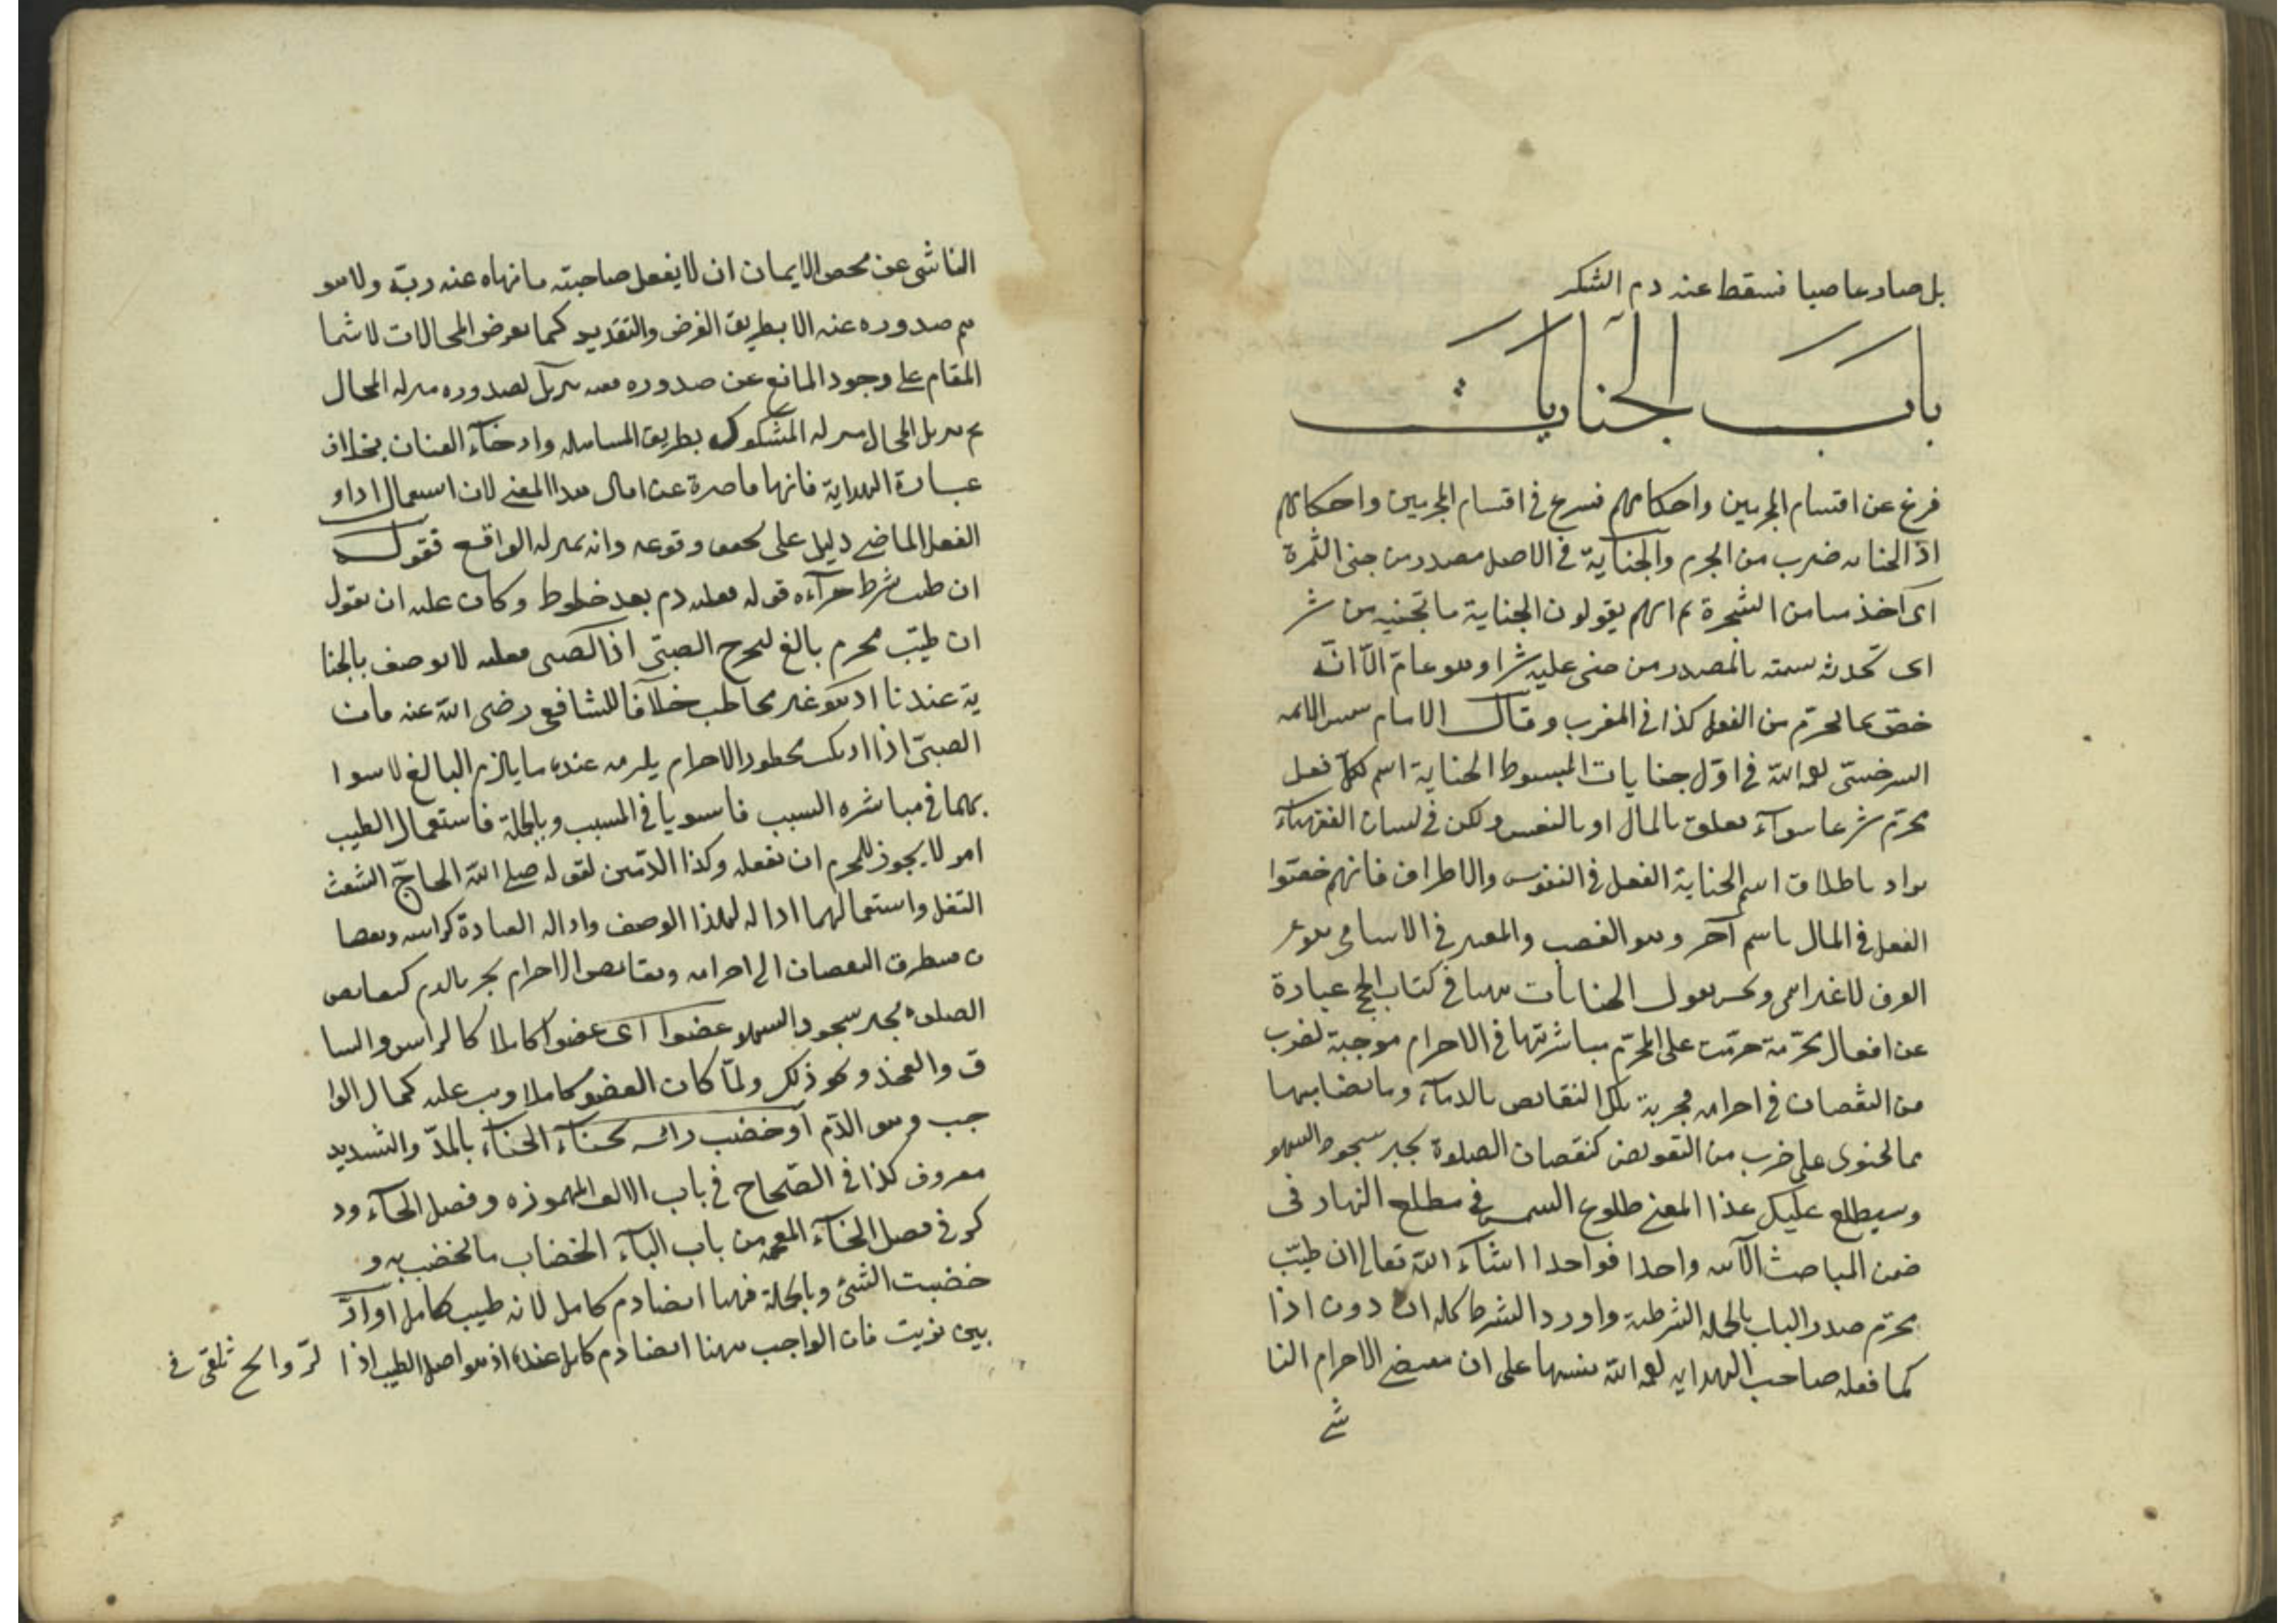 بل صار عاصيا فسقط عنه دم الشكر
باب الجنايات
فرغ عن اقسام المحرمين واحكامهم فسرع في اقسام المجرمين واحكامهم
اذ الجنايه ضرب من الجرم والجناية في الاصل مصدر من جنى الثمرة
اى اخذها من الشجرة ثم انهم يقولون الجناية ما تجنيه من شر
اى تحدثه تسميته بالمصدر من جنى عليه شرا وهو عام الا انه
خص بما يحرم من الفعل كذا في المغرب وقال الامام شمس الائمه
السرخسي رحمه الله في اول جنايات المبسوط الجناية اسم لكل فعل
محرم شرعا سوآء تعلق بالمال او بالنفس ولكن في لسان الفقهاء
يراد باطلاق اسم الجناية الفعل في النفوس والاطراف فانهم خصوا
الفعل في المال باسم آخر وهو الغصب والمعتبر في الاسامى
العرف لا غير انتهى ونحن نقول الجنايات ههنا في كتاب الحج عبارة
عن افعال محرمة حرمت على المحرم مباشرتها في الاحرام موجبة لضرب
من النقصان في احرامه مجربة تلك النقائص بالدماء وما يضاهيها
مما يحتوى على ضرب من التقويض كنقصان الصلوة يجبر بسجود السهو
وسيطلع عليك هذا المعنى طلوع الشمس في مطلع النهار فى
ضمن المباحث الآتيه واحدا فواحدا انشآء الله تعالى ان طيب
محرم صدر الباب بالجمله الشرطيه واورد الشرط كلمه ان دون اذا
كما فعله صاحب الهدايه رحمه الله تنبيها على ان مقتضى الاحرام النا
شى
الناشى عن محض الايمان ان لا يفعل صاحبته ما نهاه عنه ربه ولا يتو
هم صدوره عنه الا بطريق الفرض والتقدير كما يفرض المحالات لاشتما
المقام على وجود المانع عن صدوره فيه تنزيل لصدوره منزله المحال
ثم تنزيل المحال منزله المشكوك بطريق المساهله وارخآء العنان بخلاف
عبارة الهداية فانها قاصرة عن امثال هذا المعنى لان استعمال اذا و
الفعل الماضى دليل على تحقق وقوعه وانه بمنزله الواقع فقوله
ان طيب شرط جزآءه قوله فعليه دم بعد خطوط وكان عليه ان يقول
ان طيب محرم بالغ ليخرج الصبى اذ الصبى فعله لا يوصف بالجنا
ية عندنا اذ هو غير مخاطب خلافا للشافعى رضى الله عنه فان
الصبى اذا ارتكب محظور الاحرام يلزمه عنده ما يلزم البالغ لاستوا
ئهما في مباشره السبب فاستويا في المسبب وبالجملة فاستعمال الطيب
امر لا يجوز للمحرم ان يفعله وكذا الادهن لقوله صلى الله الحاج الشعث
التفل واستعمالهما ازاله لهذا الوصف وازاله العبادة كراهيه ونقصا
ن فيتطرق النقصان الى احرامه ونقائص الاحرام يجبر بالدم كنقايص
الصلوة يجبر بسجود السهو عضوا اى عضوا كاملا كالراس والسا
ق والفخذ ونحو ذلك ولما كان العضو كاملا وجب عليه كمال الوا
جب وهو الدم او خضب راسه بحناء الحناء بالمد والتشديد
معروف كذا في الصحاح في باب الالف المهموزه وفصل الحآء وذ
كر في فصل الخآء المعجمه من باب البآء الخضاب ما يختضب به و
خضبت الشئ وبالجملة فهنا ايضا دم كامل لانه طيب كامل او اد
هن بزيت فان الواجب ههنا ايضا دم كامل عنده اذ هو اصل الطيب اذا
لروائح تلقى في